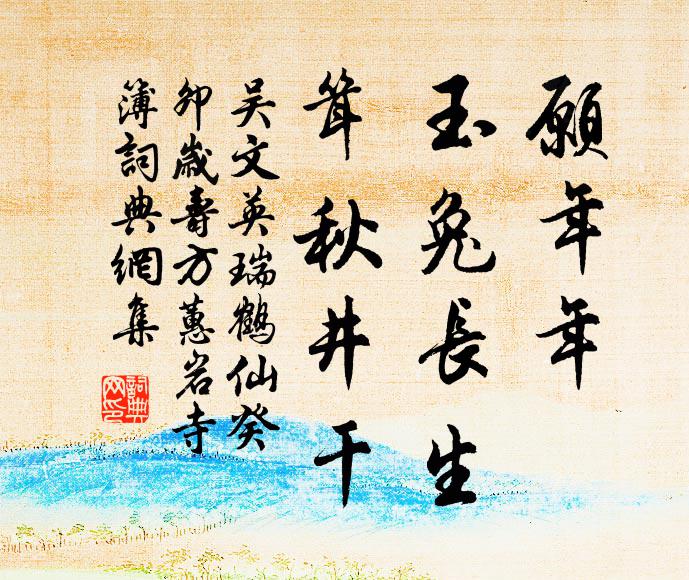 願年年
玉兔長生
聳秋井干
吴文英瑞鶴仙癸
卯歲壽方蕙岩寺
簿詞典網集
詞典
网印